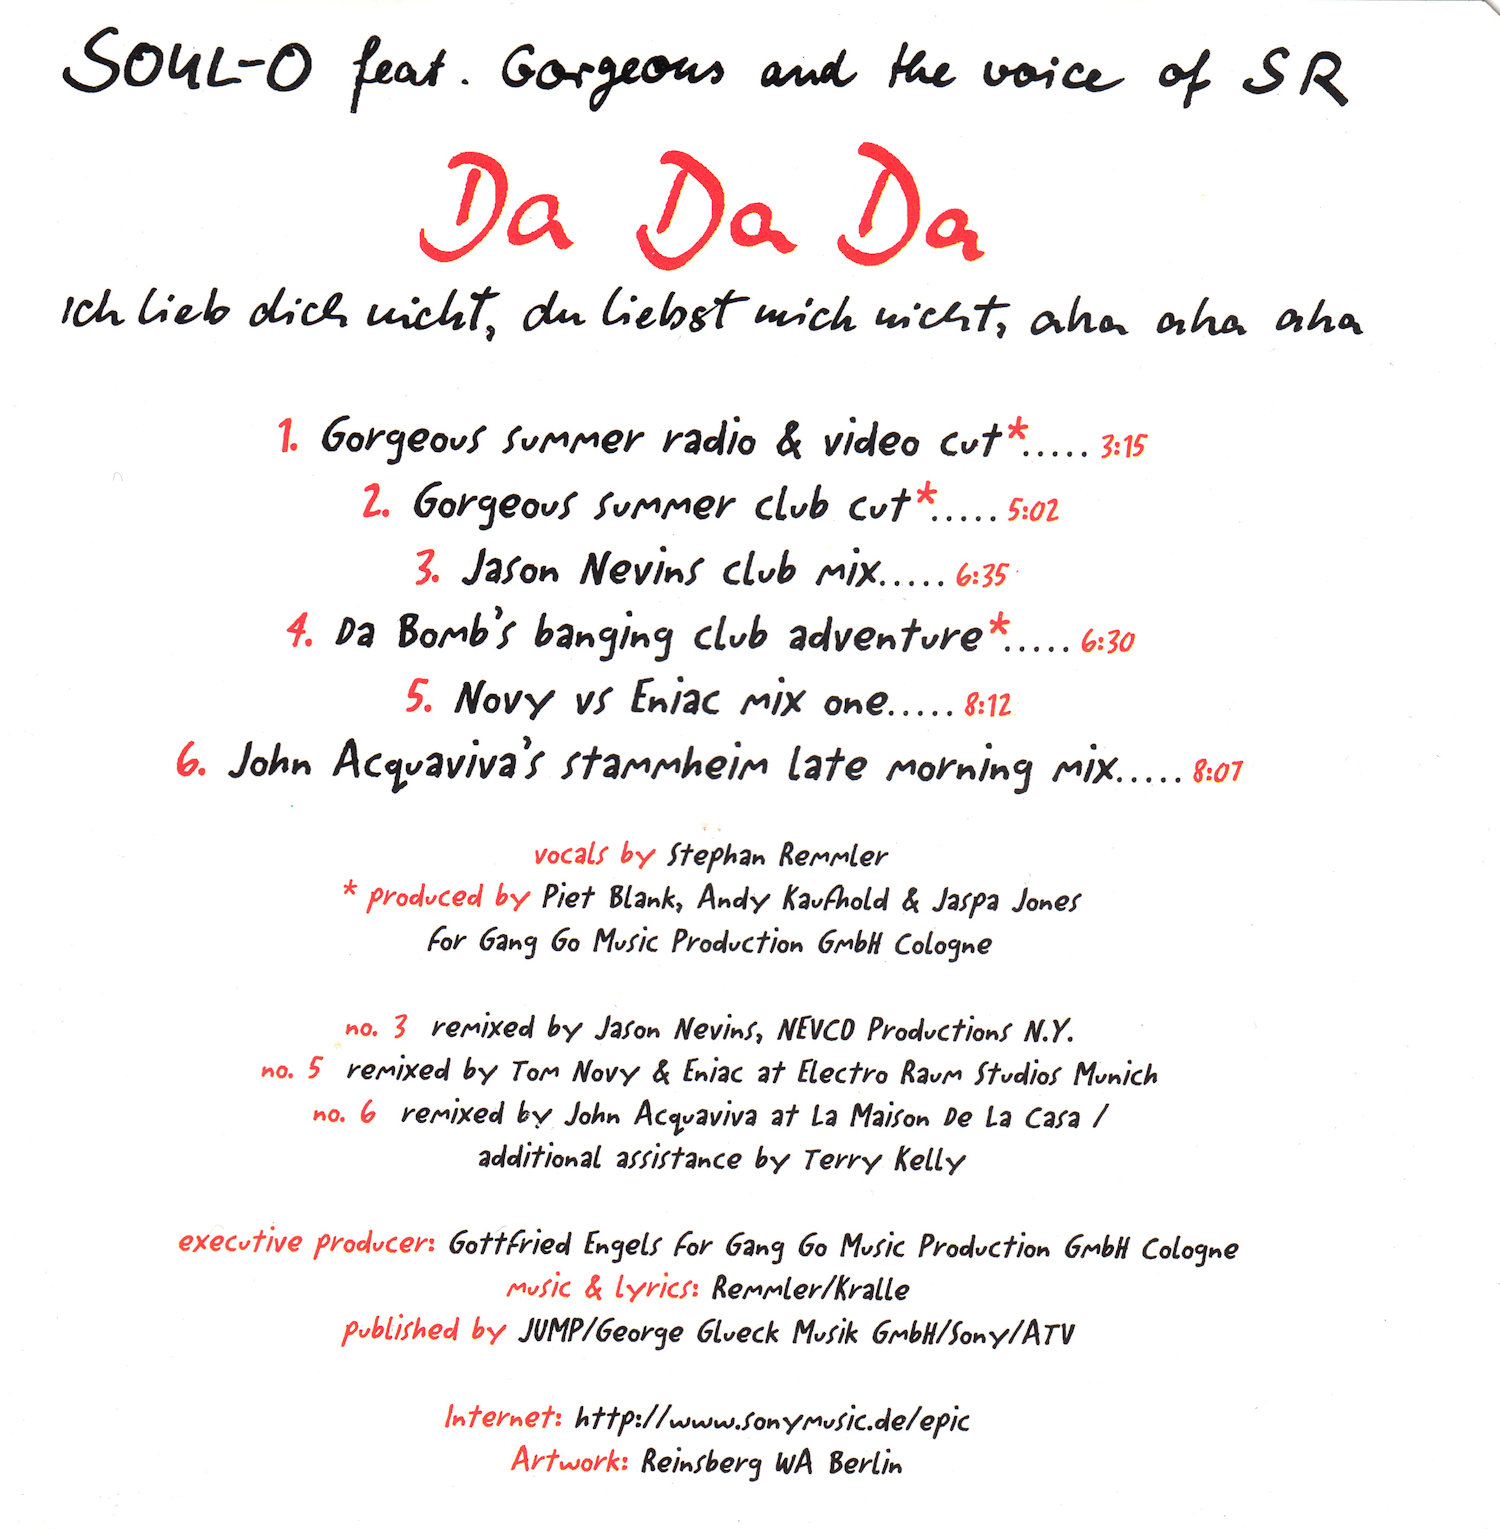 SOUL-O feat. Gorgeous and the voice of SR
Da Da Da
Ich lieb dich nicht, du liebst mich nicht, aha aha aha
1. Gorgeous summer radio & video cut*..... 3:15
2. Gorgeous summer club cut*..... 5:02
3. Jason Nevins club mix..... 6:35
4. Da Bomb's banging club adventure*..... 6:30
5. Novy vs Eniac mix one..... 8:12
6. John Acquaviva's stammheim late morning mix..... 8:07
vocals by Stephan Remmler
* produced by Piet Blank, Andy Kaufhold & Jaspa Jones
for Gang Go Music Production GmbH Cologne
no. 3 remixed by Jason Nevins, NEVCO Productions N.Y.
no. 5 remixed by Tom Novy & Eniac at Electro Raum Studios Munich
no. 6 remixed by John Acquaviva at La Maison De La Casa /
additional assistance by Terry Kelly
executive producer: Gottfried Engels for Gang Go Music Production GmbH Cologne
music & lyrics: Remmler/Kralle
published by JUMP/George Glueck Musik GmbH/Sony/ATV
Internet: http://www.sonymusic.de/epic
Artwork: Reinsberg WA Berlin